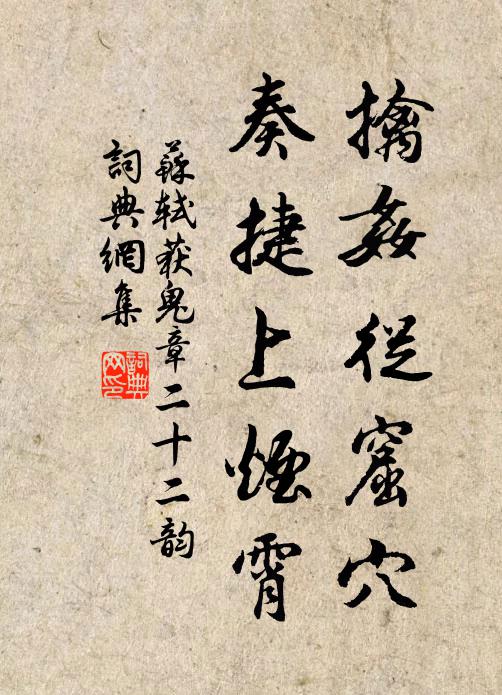 擒姦從窟穴
奏捷上煙霄
蘇軾获鬼章二十二韵
詞典網集
詞典网印